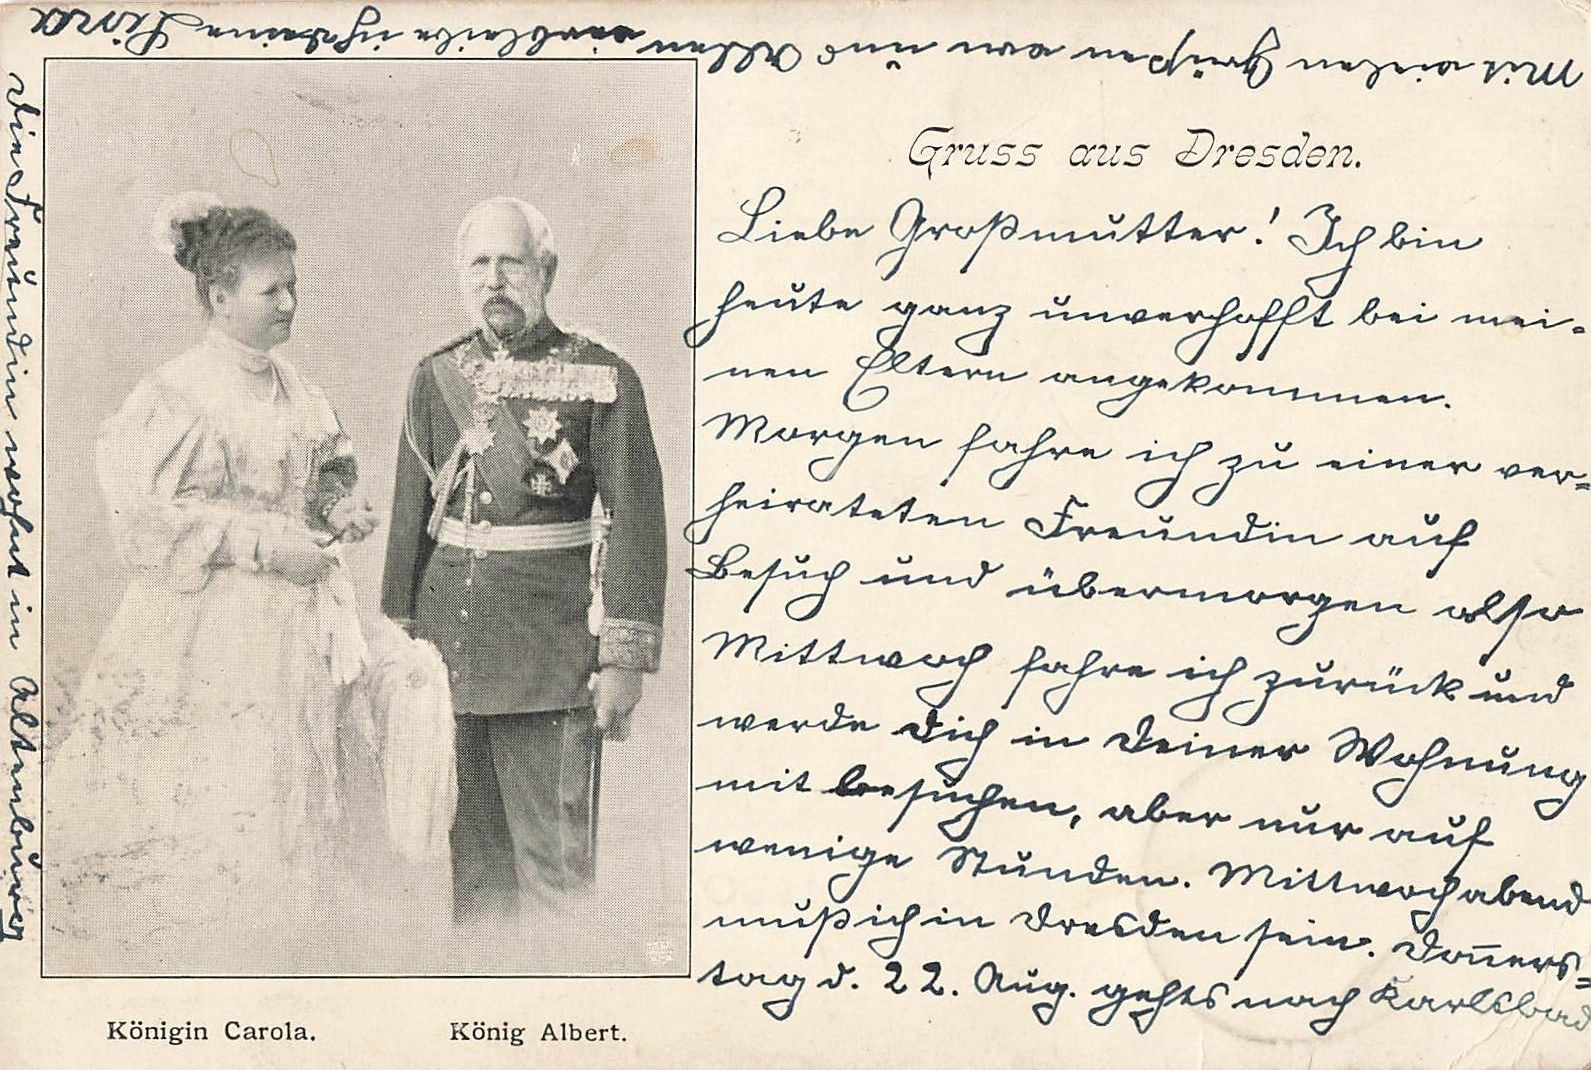 Gruss aus Dresden.
Liebe Großmutter! Ich bin
heute ganz unverhofft bei mei-
nen Eltern angekommen.
Morgen fahre ich zu einer ver-
heirateten Freundin auf
Besuch und übermorgen also
Mittwoch fahre ich zurück und
werde Dich in Deiner Wohnung
mit besuchen, aber nur auf
wenige Stunden. Mittwochabend
muß ich in Dresden sein. Donners-
tag d. 22. Aug. gehts nach Karlsbad
Mit vielen Grüßen von uns Allen verbleibe ich Deine Dora
Die Freundin wohnt in Altenburg
Königin Carola.
König Albert.